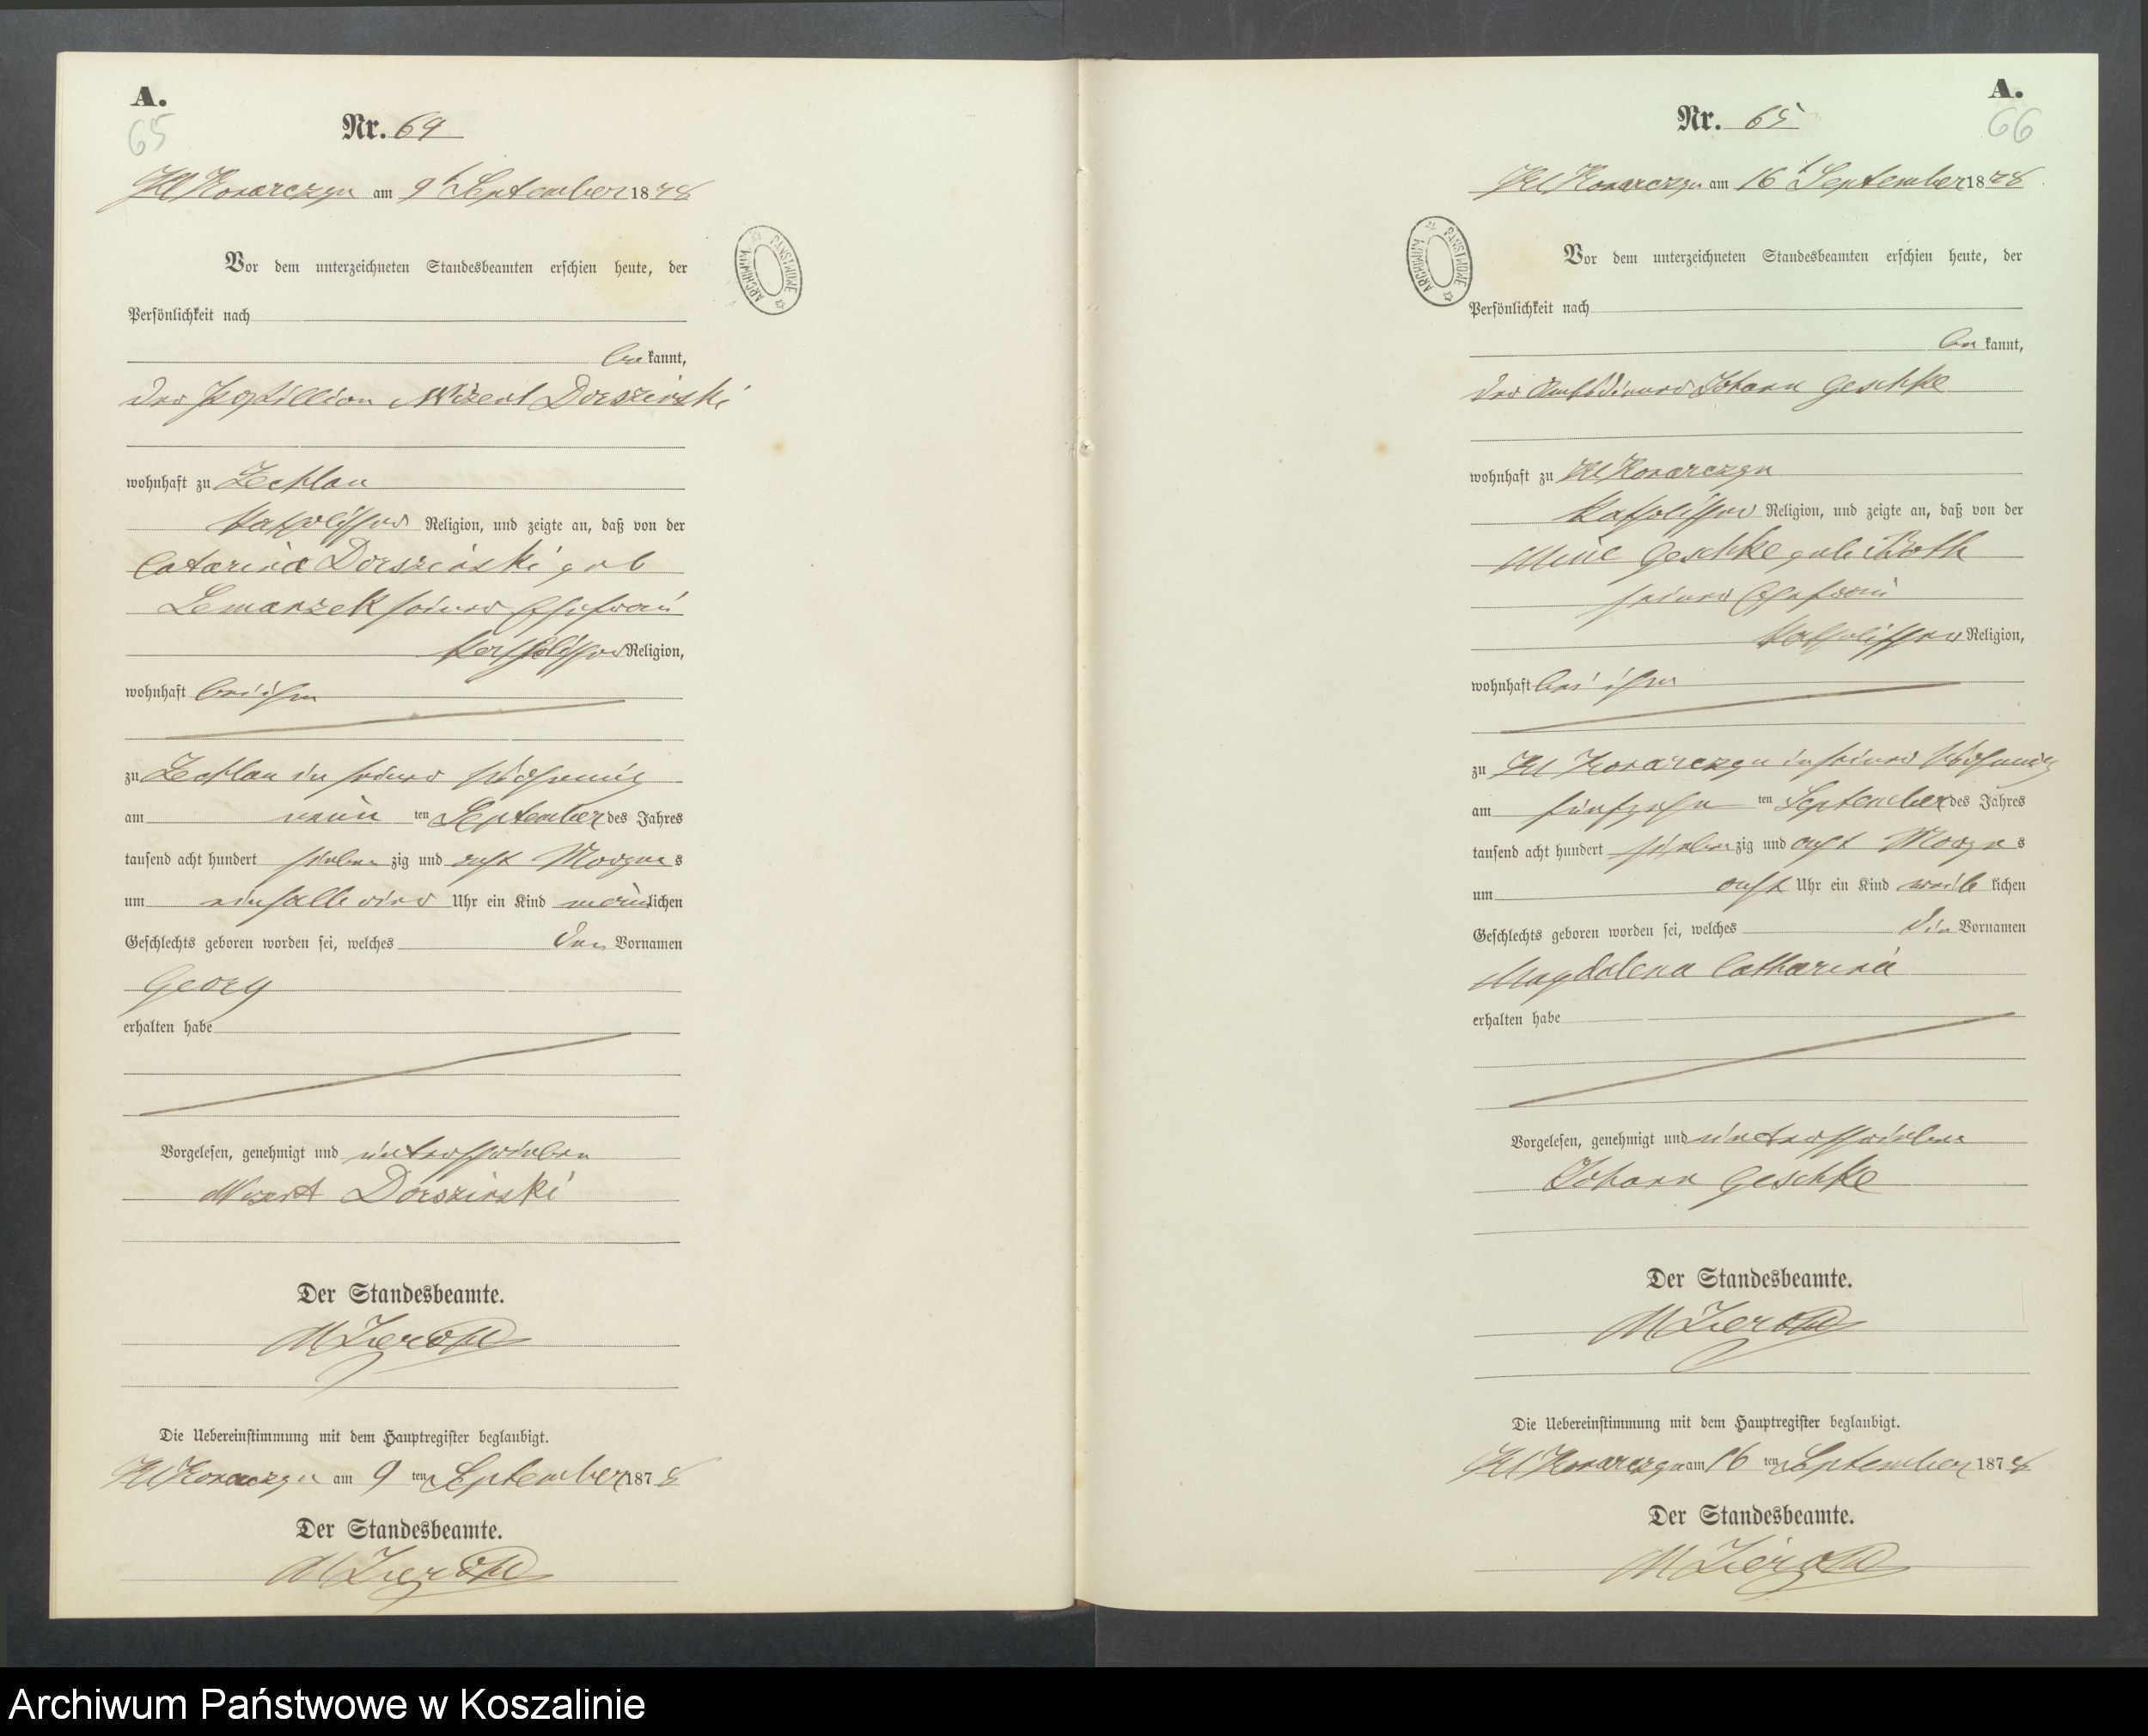 A.
65
Nr. 64
Kl Konarczyn am 9t September 1878
Vor dem unterzeichneten Standesbeamten erschien heute, der
Persönlichkeit nach
be kannt,
der Postillion Dorszinski
wohnhaft zu Zechlau
katholischer Religion, und zeigte an, daß von der
Catarina Dorszinski geb
Lemanzek seiner Ehefrau
katholischer Religion,
wohnhaft bei ihm
zu Zechlau in seiner Wohnung
am neun ten September des Jahres
tausend acht hundert sieben zig und acht Morgens
um einhalb vier Uhr ein Kind männlichen
Geschlechts geboren worden sei, welches den Vornamen
Georg
erhalten habe
Vorgelesen, genehmigt und unterschrieben
Dorszinski
Der Standesbeamte.
Die Uebereinstimmung mit dem Hauptregister beglaubigt.
Kl Konarczyn am 9 ten September 1878
Der Standesbeamte.
A.
66
Nr. 65
Kl Konarczyn am 16t September 1878
Vor dem unterzeichneten Standesbeamten erschien heute, der
Persönlichkeit nach
be kannt,
der Amtsdiener Johann Geschke
wohnhaft zu Kl Konarczyn
katholischer Religion, und zeigte an, daß von der
Geschke geb Both
seiner Ehefrau
katholischer Religion,
wohnhaft bei ihm
zu Kl Konarczyn in seiner Wohnung
am fünfzehn ten September des Jahres
tausend acht hundert sieben zig und acht Morgens
um acht Uhr ein Kind weib lichen
Geschlechts geboren worden sei, welches die Vornamen
Magdalena Catharina
erhalten habe
Vorgelesen, genehmigt und unterschrieben
Johann Geschke
Der Standesbeamte.
Die Uebereinstimmung mit dem Hauptregister beglaubigt.
Kl Konarczyn am 16 ten September 1878
Der Standesbeamte.
ARCHIWUM PAŃSTWOWE
ARCHIWUM PAŃSTWOWE
Archiwum Państwowe w Koszalinie